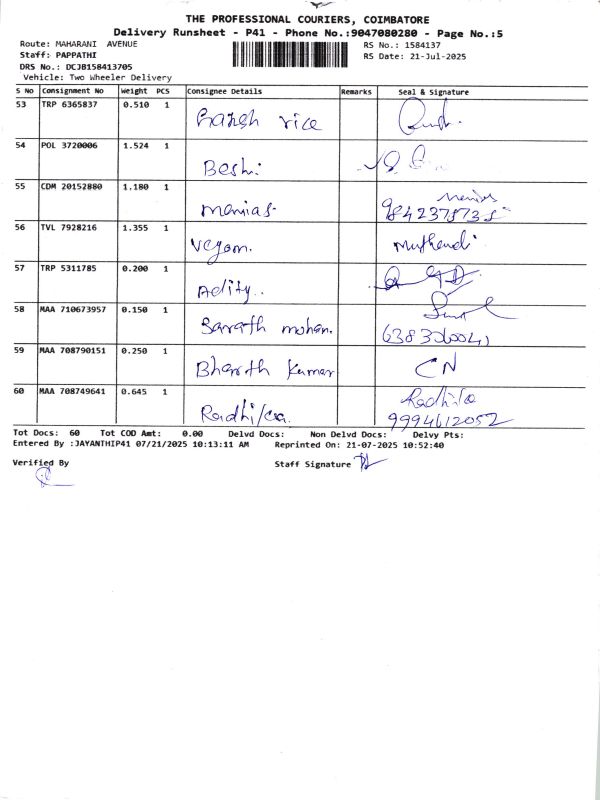 THE PROFESSIONAL COURIERS, COIMBATORE
Delivery Runsheet - P41 - Phone No.:9047080280 - Page No.:5
Route: MAHARANI AVENUE RS No.: 1584137
Staff: PAPPATHI RS Date: 21-Jul-2025
DRS No.: DCJB158413705
Vehicle: Two Wheeler Delivery
S No Consignment No Weight PCS Consignee Details Remarks Seal & Signature
53 TRP 6365837 0.510 1 rice
54 POL 3720006 1.524 1 Beshi
55 CDM 20152880 1.180 1 menias
56 TVL 7928216 1.355 1 vegam.
57 TRP 5311785 0.200 1 Adity..
58 MAA 710673957 0.150 1 Sarath mohan.
59 MAA 708790151 0.250 1 Bharath Kumar CN
60 MAA 708749641 0.645 1 9994612052
Tot Docs: 60 Tot COD Amt: 0.00 Delvd Docs: Non Delvd Docs: Delvy Pts:
Entered By :JAYANTHIP41 07/21/2025 10:13:11 AM Reprinted On: 21-07-2025 10:52:40
Verified By Staff Signature